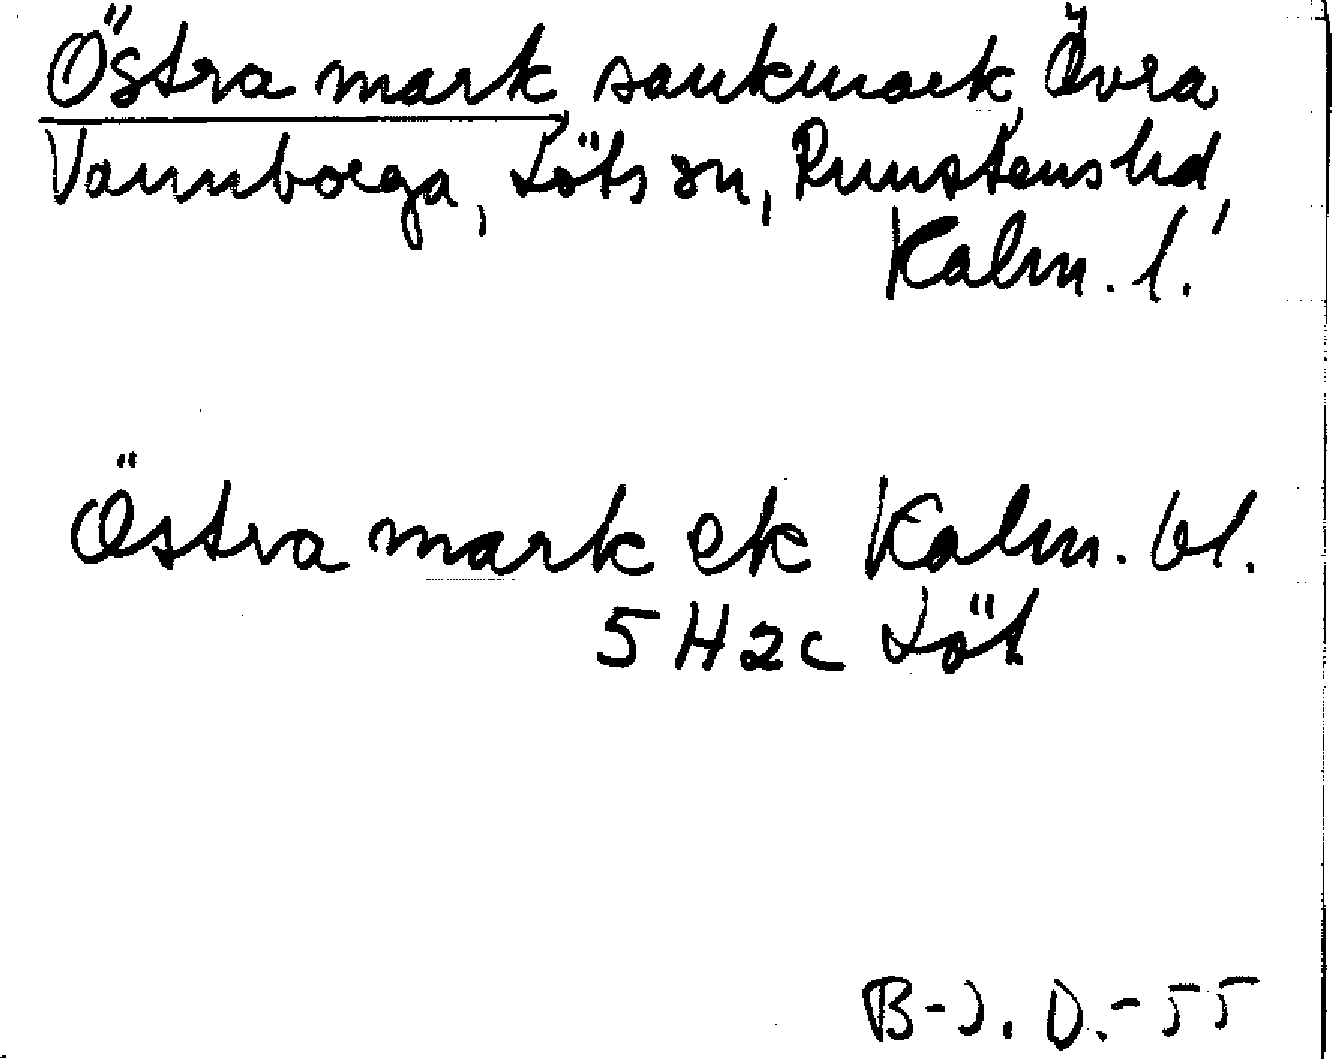 Östra mark, sankmark, Övra
Vannborga, Löts sn, Runstens hd,
Kalm. l.
Östra mark ek Kalm. bl.
5H2c Löt
B-J. D.-55